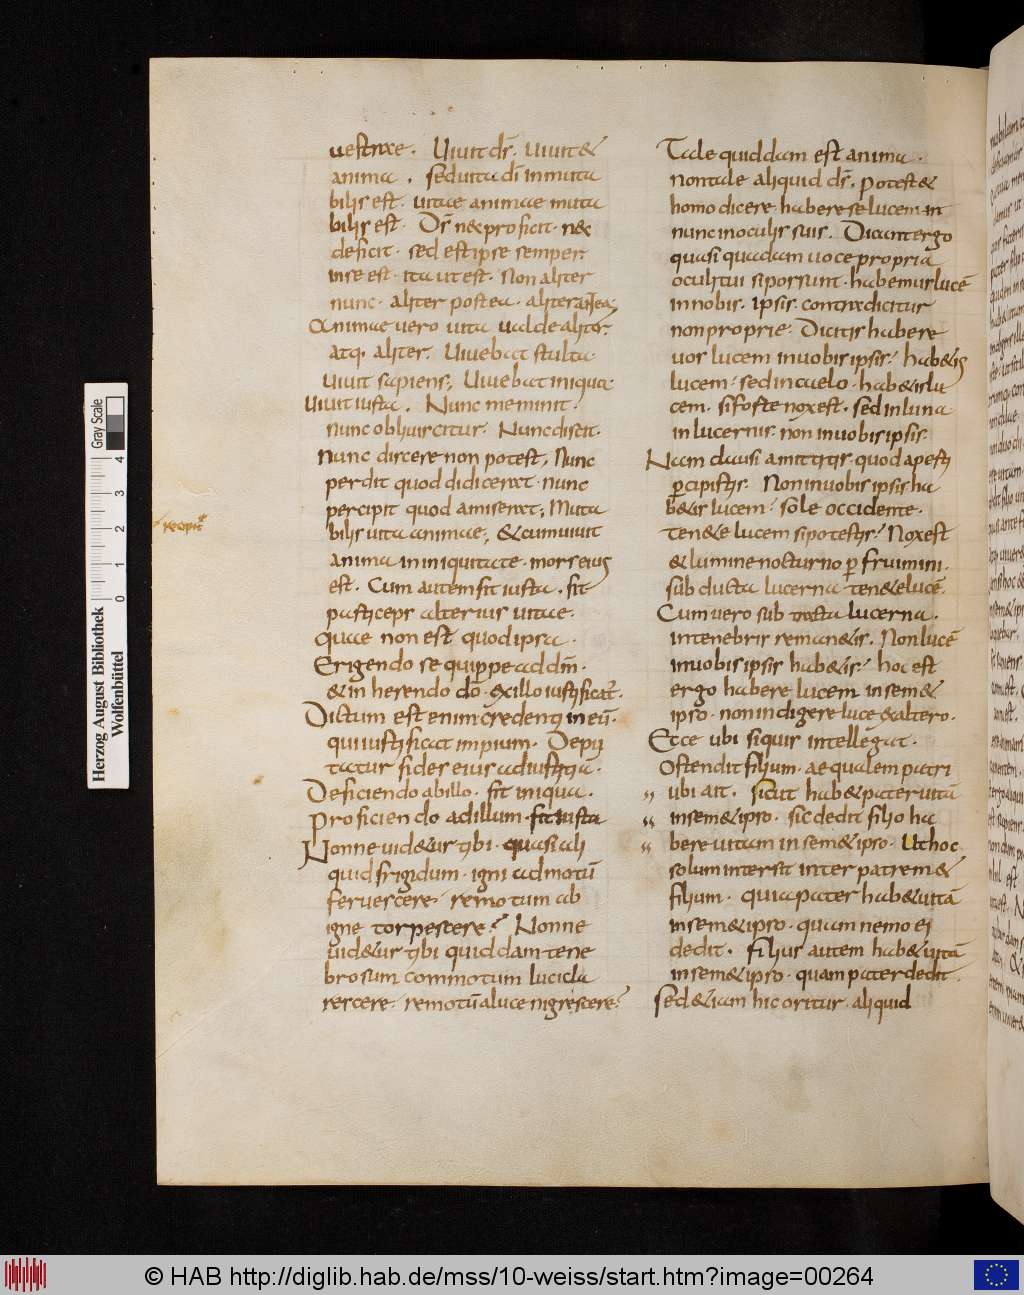 uestrae. Uiuit d̄s. uiuit &
anima. sed uita d̄i inmuta
bilis est. uitae animae muta
bilis est. D̄s nec proficit. nec
deficit. sed est ipse semper.
inse est. ita ut est. Non aliter
nunc. aliter postea. aliter antea,
Animae uero uita ualde aliter.
atq. aliter. Uiuebat stulta.
uiuit sapiens; Uiuebat iniqua.
uiuit iusta. Nunc meminit.
nunc obliuiscitur. Nunc discit.
Nunc discere non potest; Nunc
perdit quod didicerat. nunc
percipit quod amiserat; Muta
bilis uita animae; & cum uiuit
anima in iniquitate. mors eius
est. Cum autem fit iusta. fit
particeps alterius uitae.
Quae non est quod ipsa.
Erigendo se quippe ad dn̄m.
& inherendo dō. ex illo iustificat̄.
Dictum est enim credenti in eū.
qui iustificat impium. Depu
tatur fides eius ad iustitia.
Deficiendo ab illo. fit iniqua.
Proficiendo ad illum. fit iusta
Nonne uid&ur tibi. quasi ali
quid frigidum. igni admotū
feruescere. remotum ab
igne torpescere? Nonne
uid&ur tibi quiddam tene
brosum commotum lucida
rescere. remotū a luce nigrescere?
Tale quiddam est anima.
non tale aliquid d̄s. potest &
homo dicere habere se lucem in
nunc in oculis suis. Dicant ergo
quasi quadam uoce propria
oculi tui si possunt. habemus lucē
in nobis. ipsis. contradicitur
non proprie. Dicitis habere
uos lucem in uobis ipsis? hab&is
lucem. sed in caelo. hab&is lu
cem. si forte nox est. sed in luna
in lucernis. non in uobis ipsis.
Nam clausi amittitis. quod aperti
ꝑcipistis. Non in uobis ipsis ha
b&is lucem. sole occidente.
ten&e lucem si potestis? Nox est
& lumine nocturno ꝑfruimini.
subducta lucerna ten&e lucē.
Cum uero subtracta lucerna.
in tenebris reman&is. Non lucē
in uobis ipsis hab&is? hoc est
ergo habere lucem in sem&
ipso. non indigere luce & altero.
Ecce ubi siquis intellegat.
Ostendit filium. aequalem patri
ubi ait. sicut hab& pater uitā
in sem&ipso. sic dedit filio ha
bere uitam in sem&ipso. Ut hoc
solum intersit inter patrem &
filium. quia pater hab& uitā
in sem&ipso. quam nemo ei
dedit. filius autem hab& uitā
in sem&ipso. quam pater dedit.
Sed & iam hic oritur. aliquid
Gray Scale
4 3 2 1 0
Herzog August Bibliothek
Wolfenbüttel
© HAB http://diglib.hab.de/mss/10-weiss/start.htm?image=00264